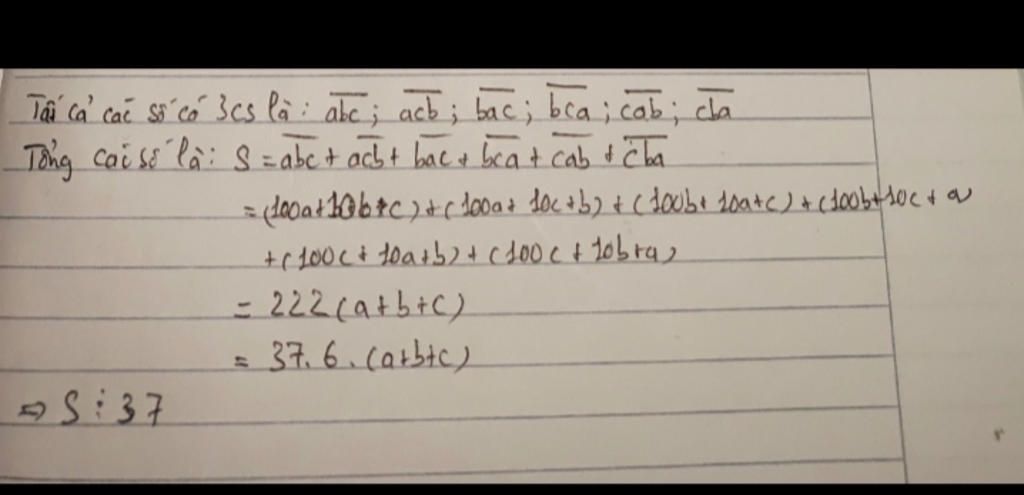 Tất cả các số có 3cs là: a̅b̅c̅; a̅c̅b̅; b̅a̅c̅; b̅c̅a̅; c̅a̅b̅; c̅b̅a̅
Tổng các số là: S = a̅b̅c̅ + a̅c̅b̅ + b̅a̅c̅ + b̅c̅a̅ + c̅a̅b̅ + c̅b̅a̅
= (100a+10b+c) + (100a+ 10c+b) + (100b+ 10a+c) + (100b+10c + a
+ (100c + 10a+b) + (100c + 10b+a)
= 222 (a+b+c)
= 37. 6. (a+b+c)
⇒ S ⋮ 37